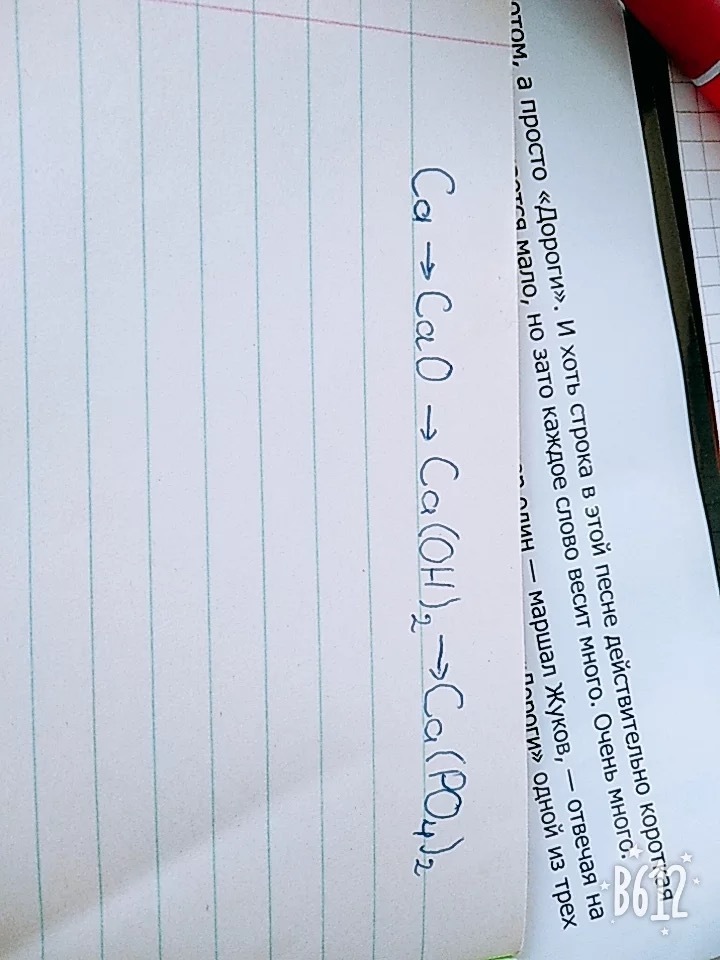 отом, а просто «Дороги». И хоть строка в этой песне действительно короткая
мало, но зато каждое слово весит много. Очень много.
один — маршал Жуков, — отвечая на
дороги» одной из трех
Ca → CaO → Ca(OH)₂ → Ca(PO₄)₂
B612